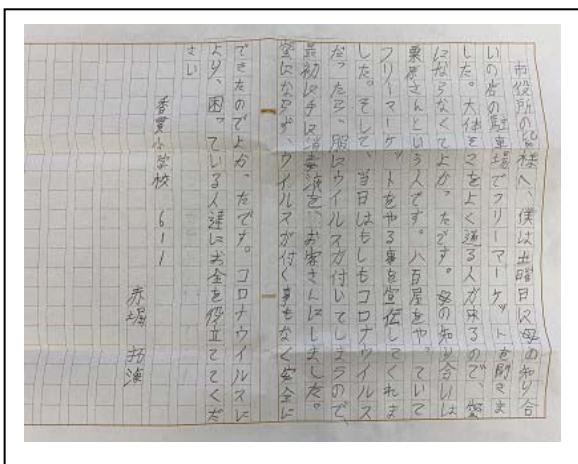 市役所の皆様へ、僕は土曜日に母の知り合
いの店の駐車場でフリーマーケットを開きま
した。大体そこをよく通る人が来るので、密
にならなくてよかったです。母の知り合いは
栗原さんという人です。八百屋をやっていて
フリーマーケットをやる事を宣伝してくれま
した。そして、当日はもしもコロナウイルス
だったら、服にウイルスが付いてしまうので、
最初に手に消毒液を、お客さんにしました。
密にならず、ウイルスが付く事もなく安全に
できたのでよかったです。コロナウイルスに
より、困っている人達にお金を役立ててくだ
さい
香貫小学校 6-1
赤堀